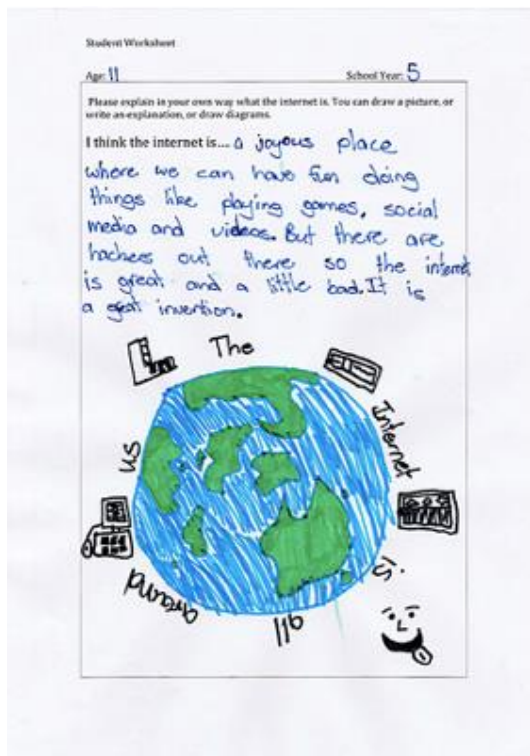 Student Worksheet
Age: 11 School Year: 5
Please explain in your own way what the internet is. You can draw a picture, or
write an explanation, or draw diagrams.
I think the internet is... a joyous place
where we can have fun doing
things like playing games, social
media and videos. But there are
hackers out there so the internet
is great and a little bad. It is
a great invention.
The
Internet
is
all
around
us